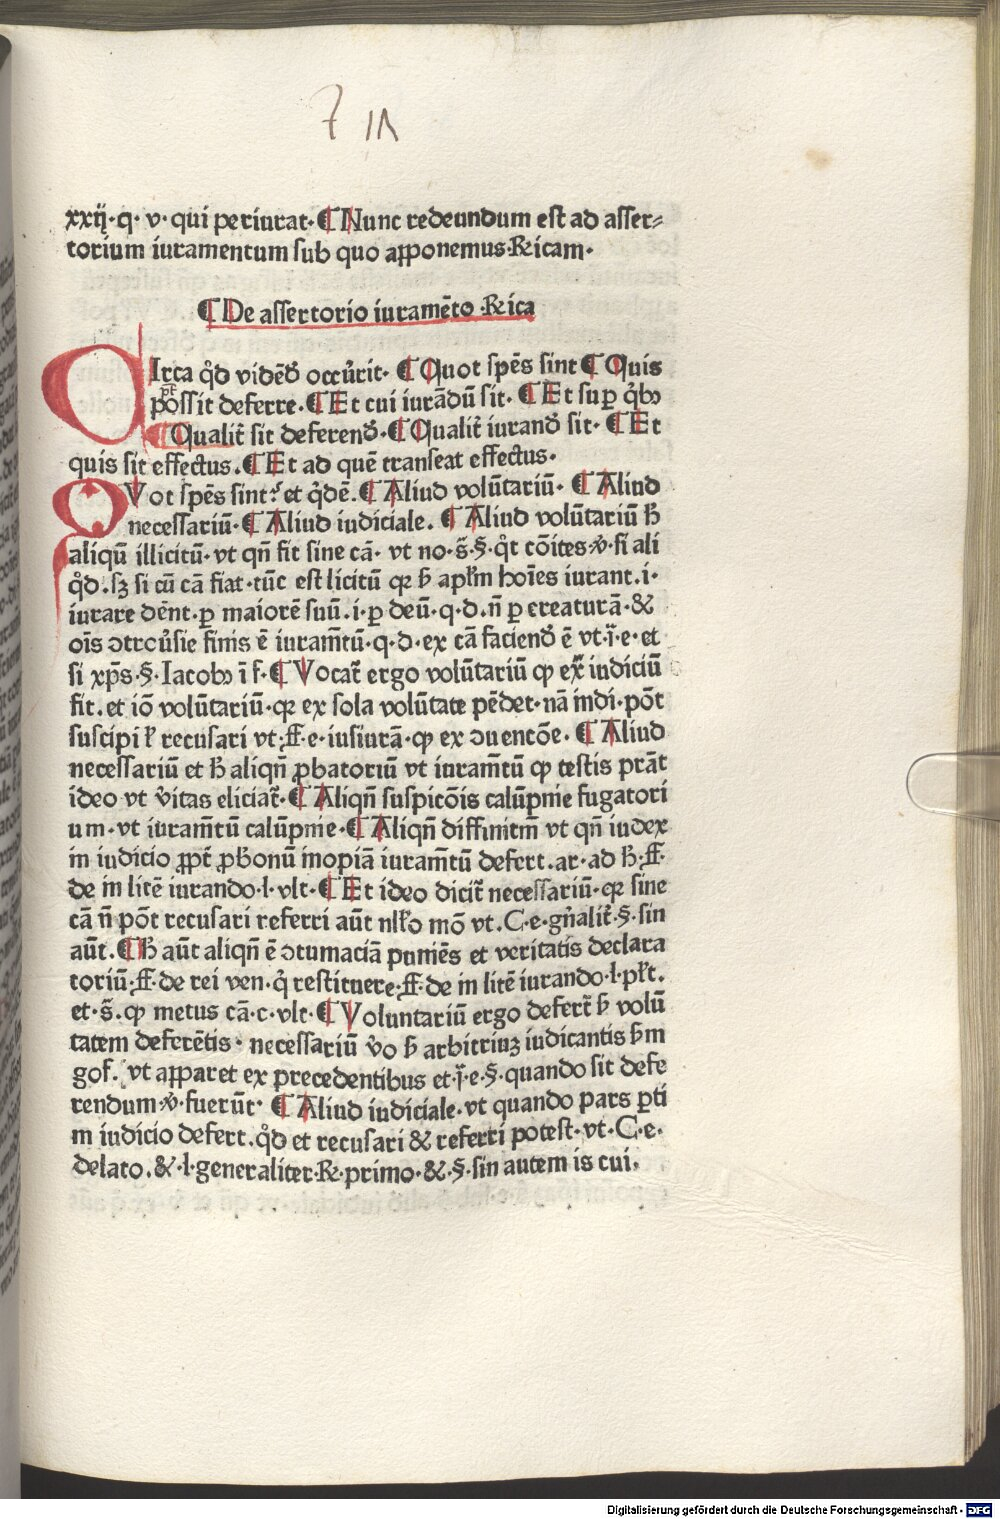 7 in
xxij·q·v·qui periurat·¶Nunc redeundum est ad asser⸗
torium iuramentum sub quo apponemus·Ricam·
¶De assertorio iuramēto·Rica
CIrca qd̓ vidēd̓ occur̓rit·¶Quot spēs sint¶Quis
pt
possit deferre.¶Et cui iurādū sit·¶Et sup̄ qb̓ꝫ
Qualit̄ sit deferend̓·¶Qualit̄ iurand̓ sit·¶Et
quis sit effectus.¶Et ad quē transeat effectus·
QVot spēs sint·et qd̓ē.¶Aliud volūtariū·¶Aliud
necessariū·¶Aliud iudiciale.¶Aliud volūtariū ꝉ
aliqū illicitū·vt qn̄ fit sine cā·vt no·s̄·§·qt̓ cōites·ꝟ·si ali
qd̓.sꝫ si cū cā fiat·tūc est licitū qꝛ ẜ apl̄m hoīes iurant.i·
iurare dēnt·ꝑ maiorē suū.i·ꝑ deū·q·d·n̄ ꝑ creaturā·&
oīs ↄtrou̓sie finis ē iuram̄tū·q·d·ex cā faciend̓ ē vt·ī·e·et
si xp̄s·§·Iacobꝫ ī f·¶Vocat̄ ergo volūtariū qꝫ ex̄ iudiciū
fit·et iō volūtariū·qꝛ ex sola volūtate pēdet·nā indi·pōt
suscipi ł recusari vt·ff·e·iusiurā·qꝫ ex ↄuentōe·¶Aliud
necessariū et ħ aliqn̄ ꝓbatoriū vt iuram̄tū qꝫ testis prāt
ideo vt v̓itas eliciat̄·¶Aliqn̄ suspicōis calūpnie fugatori
um·vt iuram̄tū calūpnie·¶Aliqn̄ diffinitm̄ vt qn̄ iudex
in iudicio ꝓpt̄ ꝓbonū inopiā iuram̄tū defert.ar·ad ħ·ff·
de in litē iurando·l·vlt·¶Et ideo dicit̄ necessariū·qꝛ sine
cā n̄ pōt recusari referri aūt nlł̓o mō vt.C·e·gn̓alit̄·§·sin
aūt.¶ħ aūt aliqn̄ ē ↄtumaciā puniēs et veritatis declara
toriū·ff·de rei ven·q̓ restituere·ff·de in litē iurando·l·pl̄t.
et·s̄·qꝫ metus cā·c·vlt·¶Voluntariū ergo defert̄ ẜ volū
tatem deferētis·necessariū v̓o ẜ arbitriuꝫ iudicantis ẜm
gof. vt apparet ex precedentibus et·ī·e·§·quando sit defe
rendum·ꝟ·fuerūt·¶Aliud iudiciale·vt quando pars ꝑti
in iudicio defert.qd̓ et recusari & referri potest·vt·C·e·
delato.&·l·generaliter·R·primo·&·§·sin autem is cui.
Digitalisierung gefördert durch die Deutsche Forschungsgemeinschaft - DFG